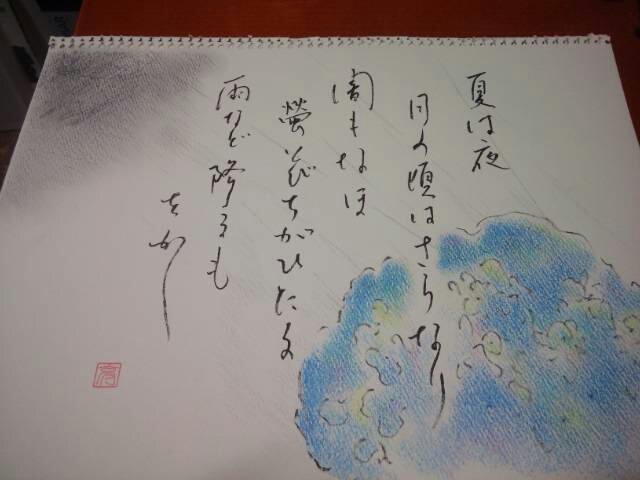 夏は夜
月の頃はさらなり
闇もなほ
螢飛びちがひたる
雨など降るも
をかし